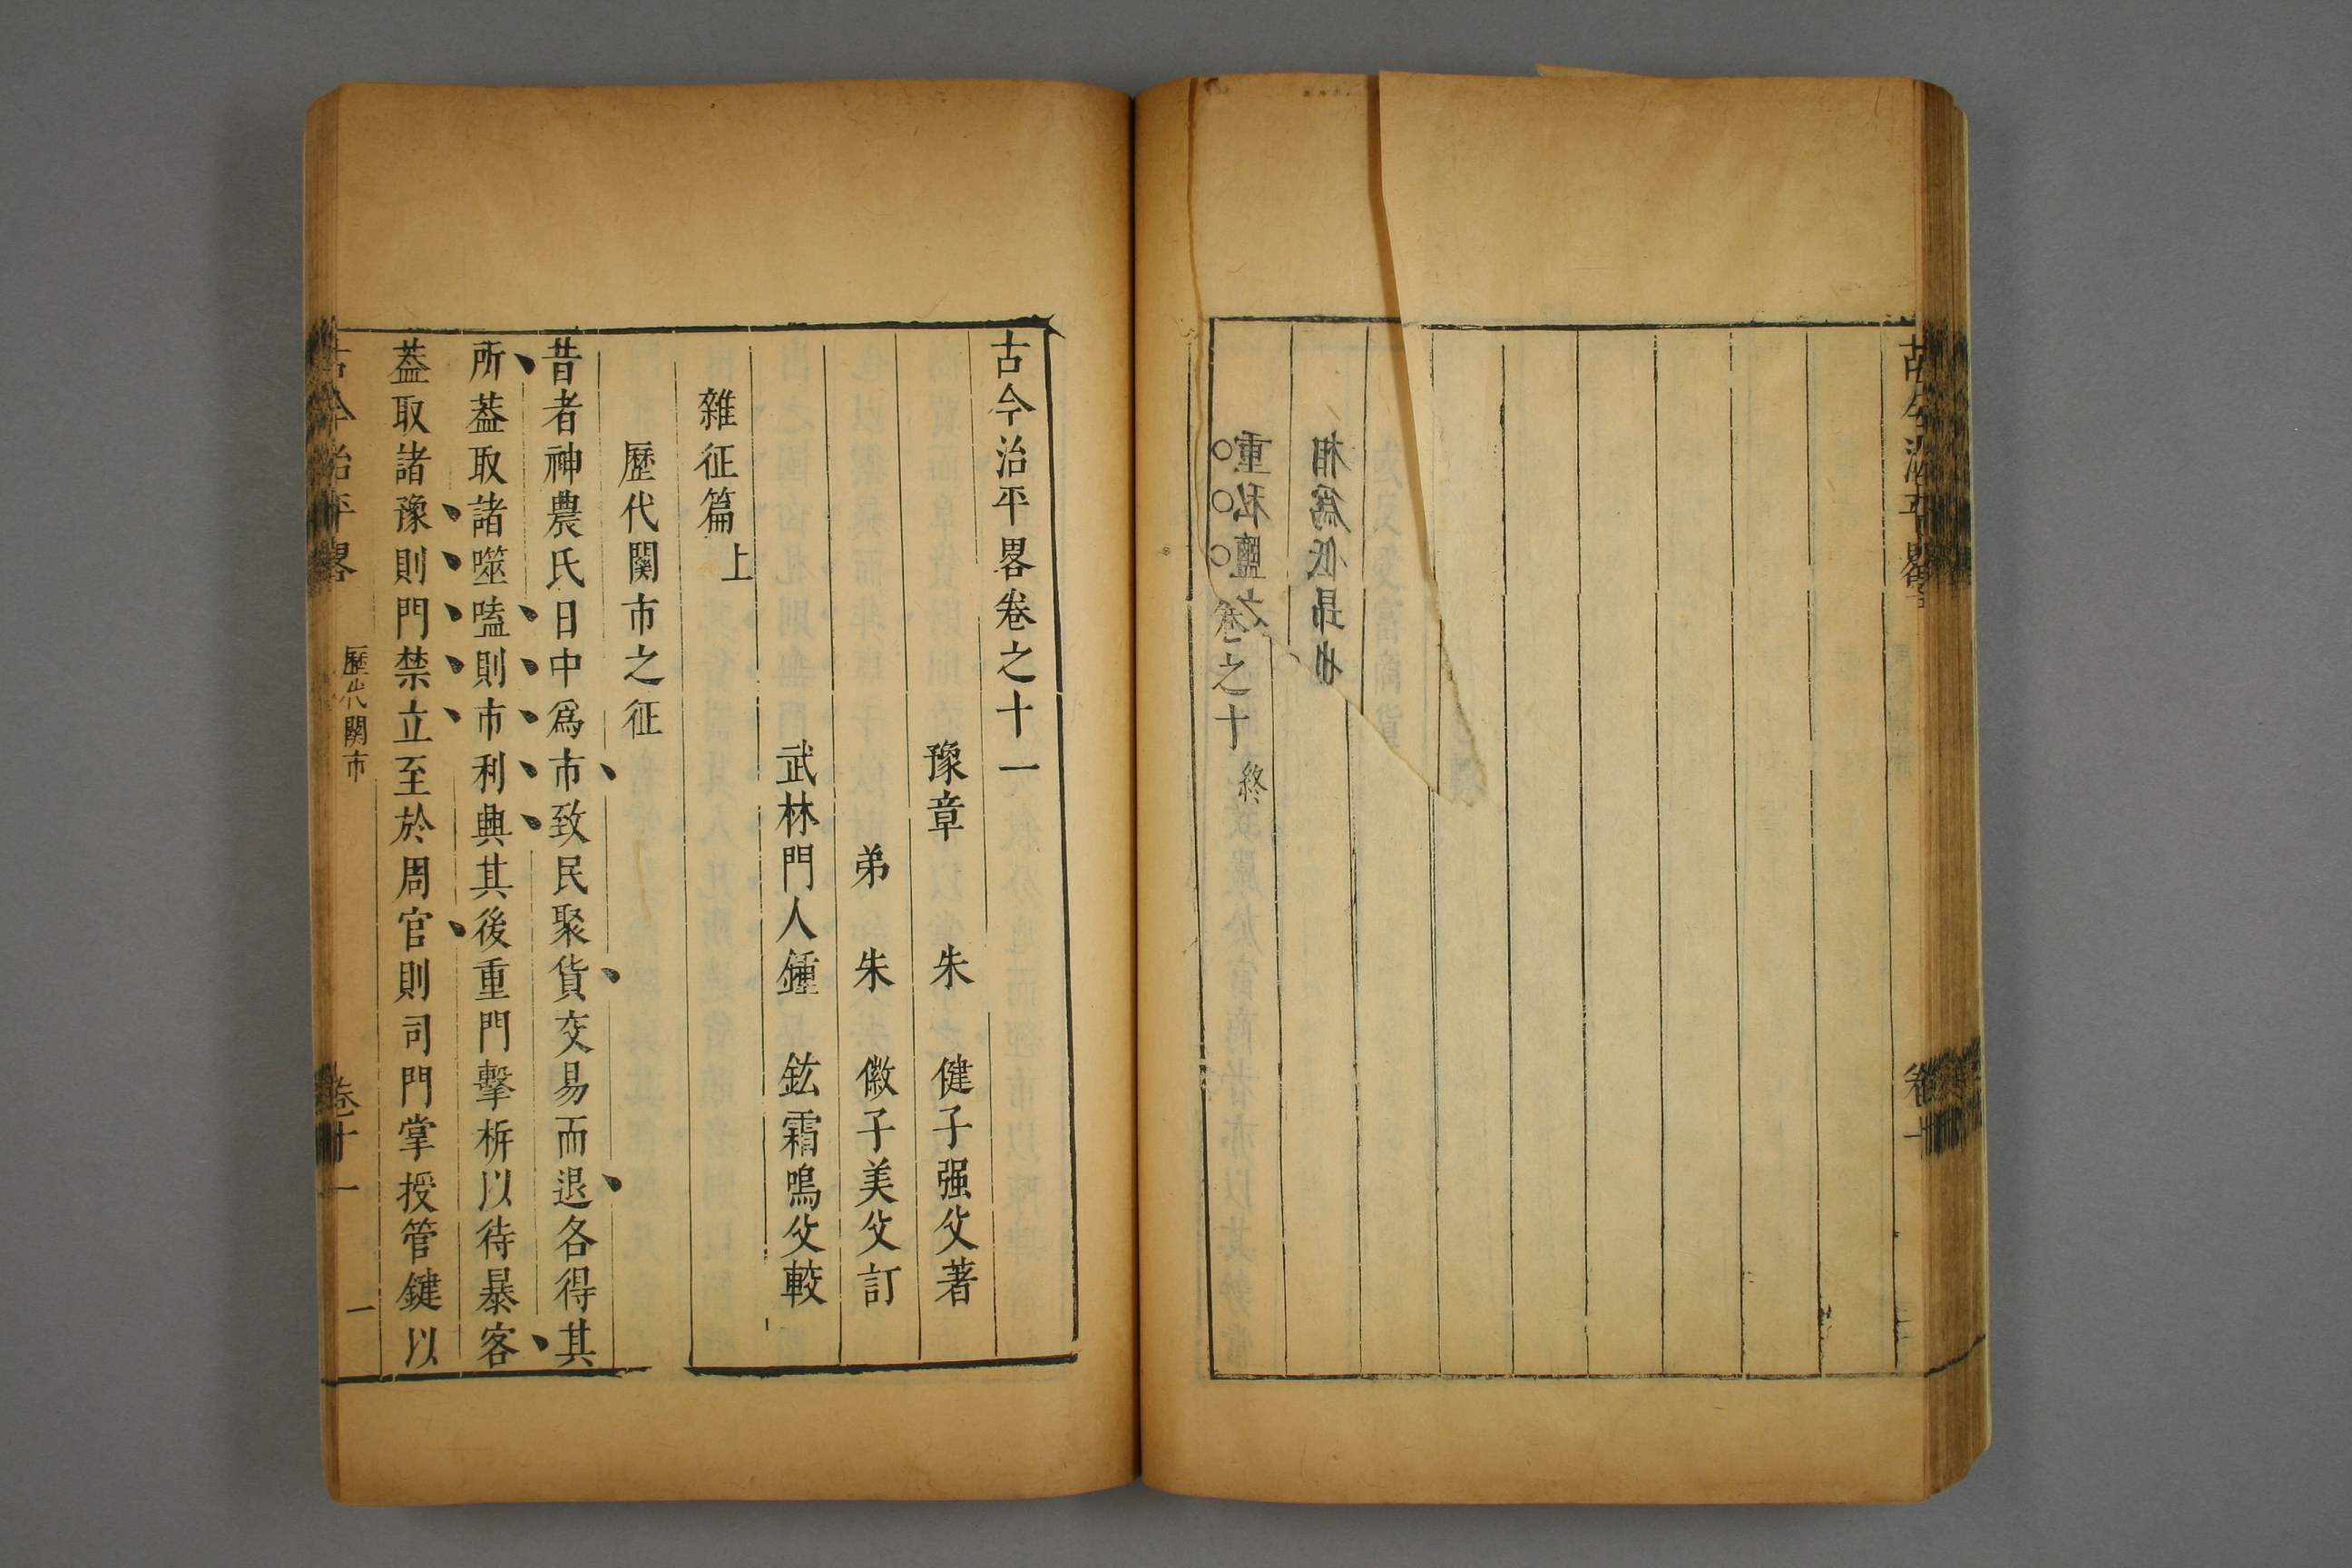 相爲低昂也
重私鹽之
卷之十 終
古今治平畧卷之十一
豫章 朱 健子强父著
弟 朱 徽子美父訂
武林門人鍾 鉉霜鳴父較
雜征篇上
歷代関市之征
昔者神農氏日中爲市致民聚貨交易而退各得其
所葢取諸噬嗑則市利興其後重門擊柝以待暴客
葢取諸豫則門禁立至於周官則司門掌授管鍵以
古今治平畧 歷代関市 卷十一 一